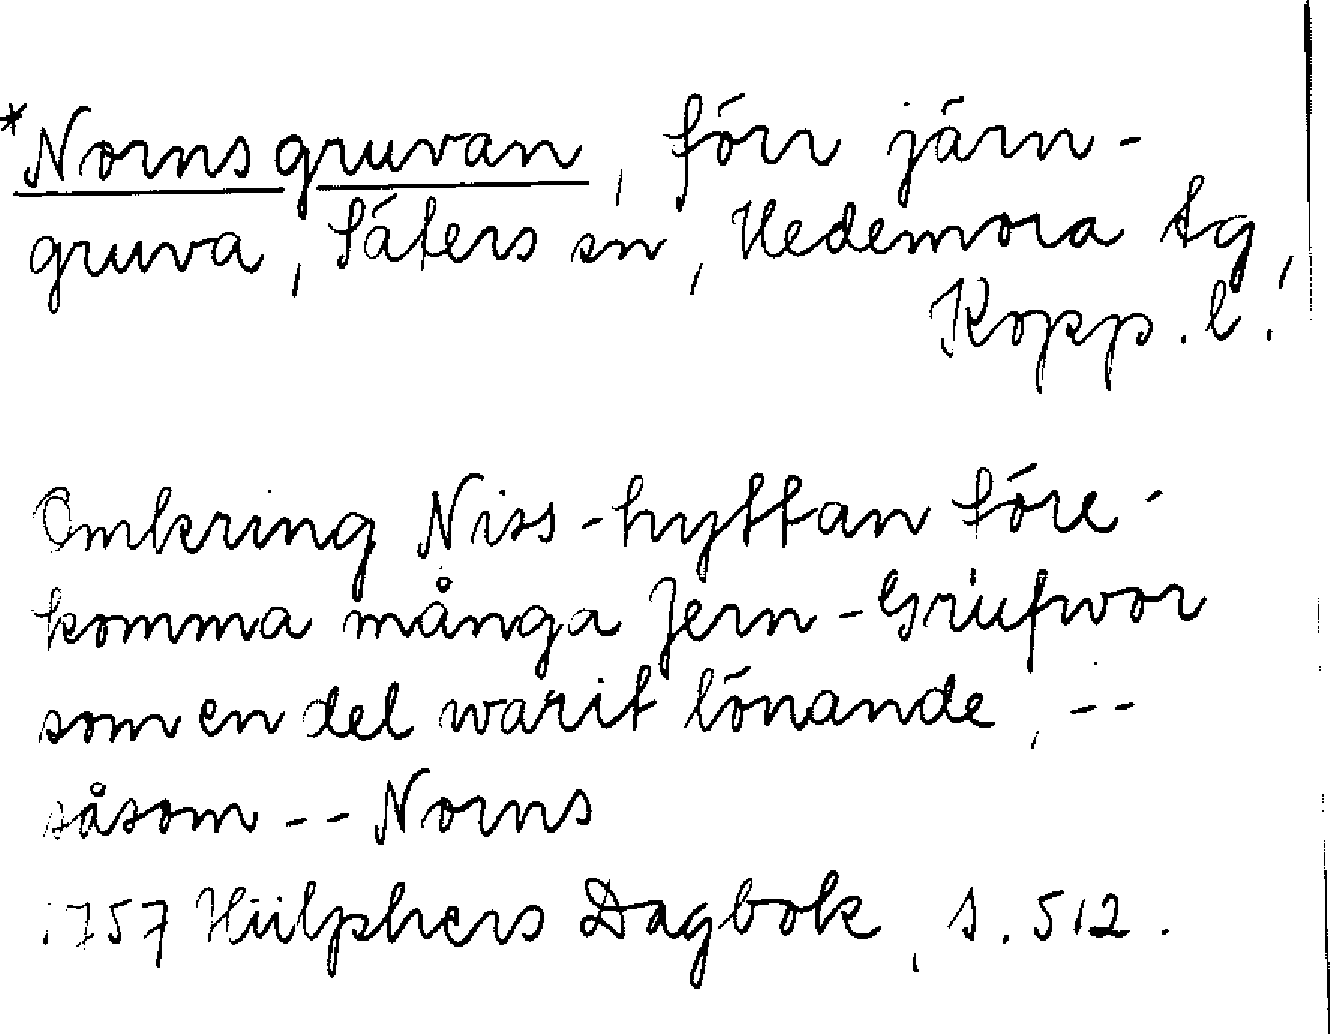 *Nornsgruvan, förr järn-
gruva, Säters sn, Hedemora tg,
Kopp. l.
Omkring Niss-hyttan före-
komma många Jern-Grufwor
som en del warit lönande, --
såsom -- Norns
1757 Hülphers Dagbok, s. 512.